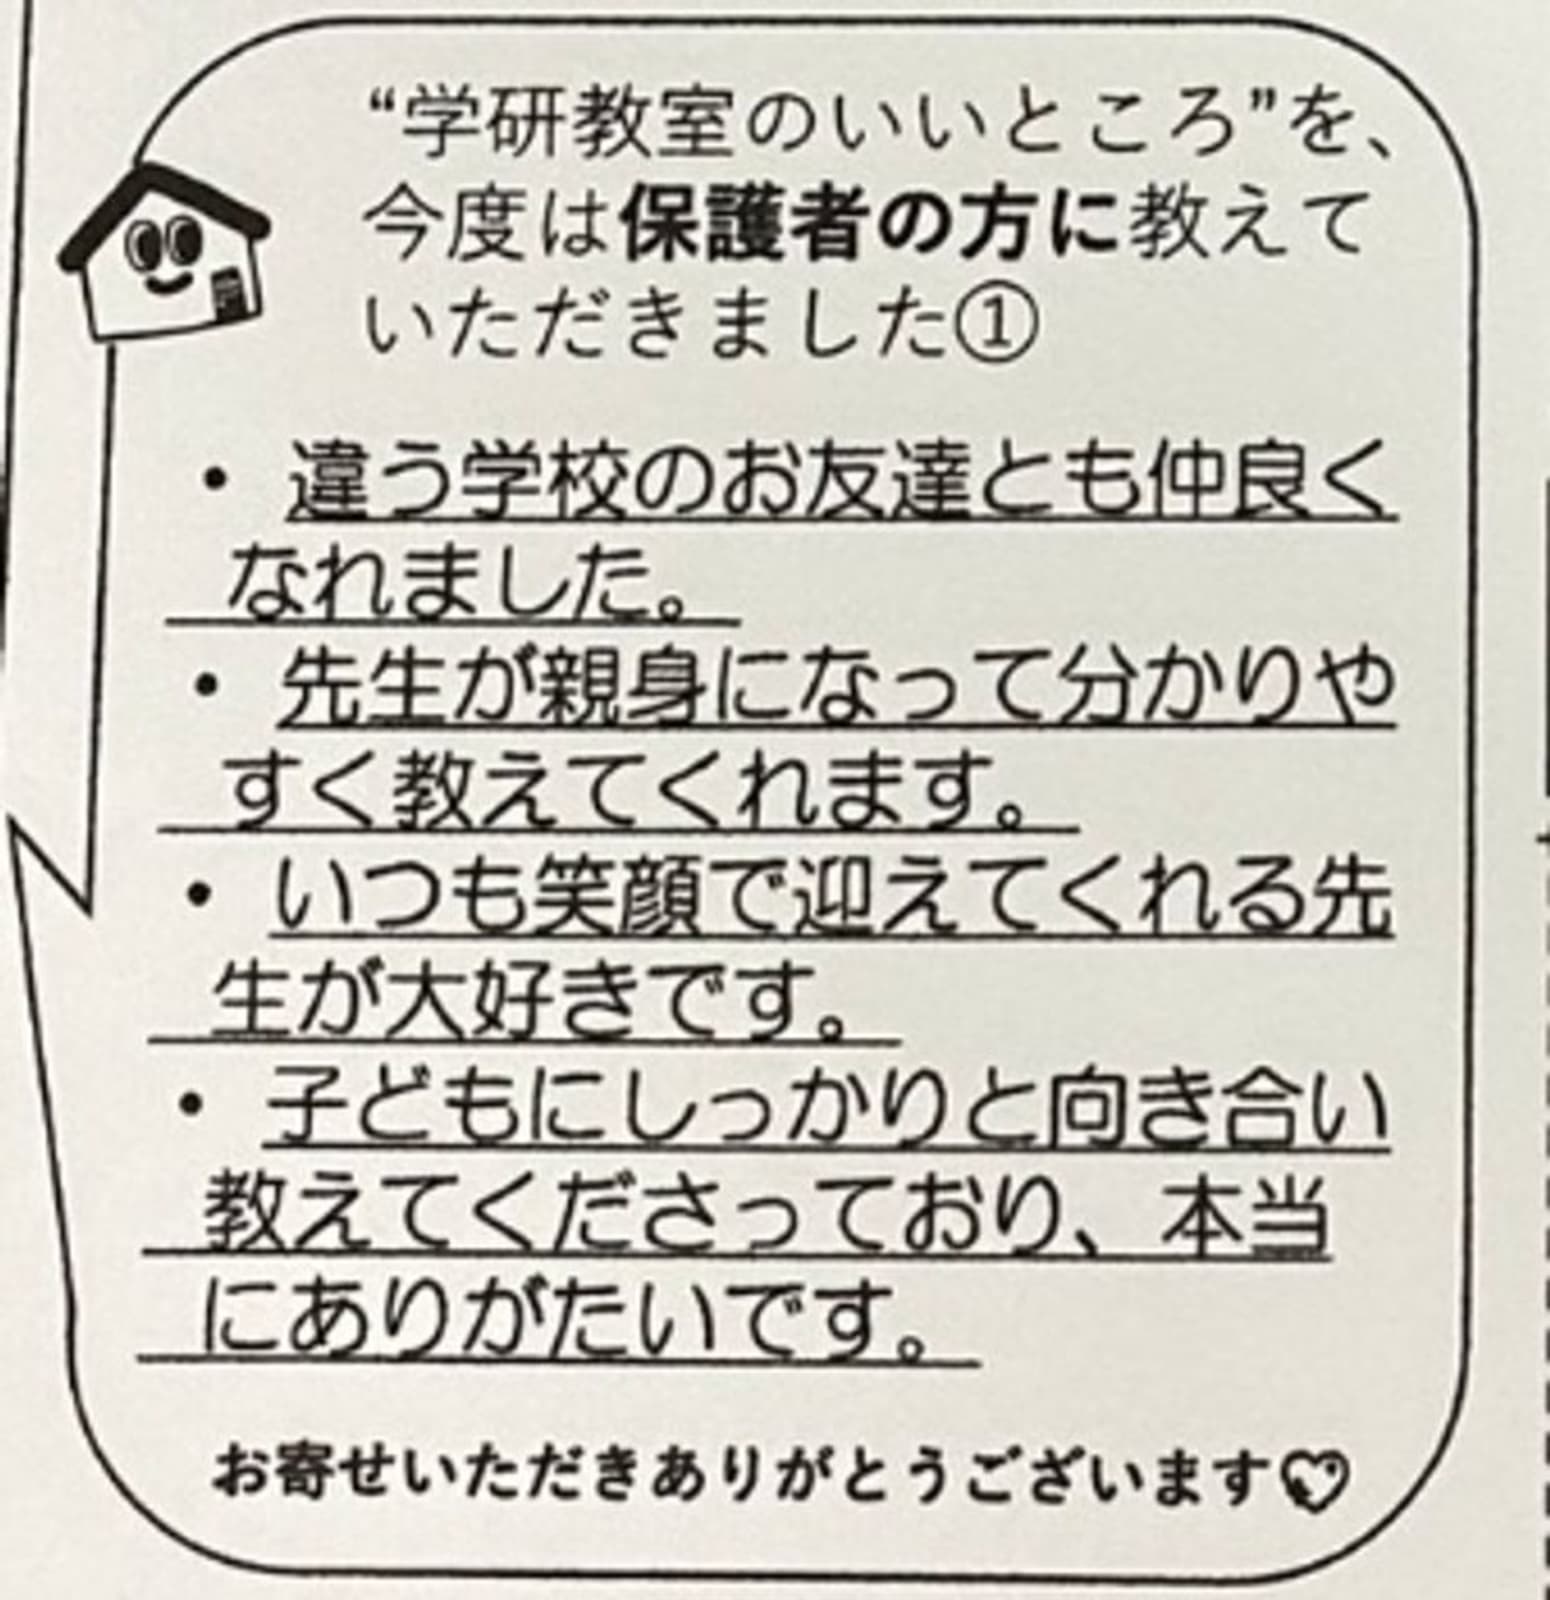 “学研教室のいいところ”を、
今度は保護者の方に教えて
いただきました①
・違う学校のお友達とも仲良く
なれました。
・先生が親身になって分かりや
すく教えてくれます。
・いつも笑顔で迎えてくれる先
生が大好きです。
・子どもにしっかりと向き合い
教えてくださっており、本当
にありがたいです。
お寄せいただきありがとうございます♡